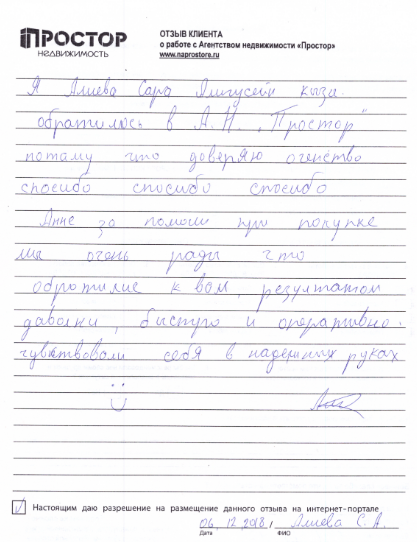 ПРОСТОР
НЕДВИЖИМОСТЬ
ОТЗЫВ КЛИЕНТА
о работе с Агентством недвижимости «Простор»
www.naprostore.ru
Я Алиева Сара Алигусейн кызы.
обратилась в А.Н. „Простор"
потаму что доверяю агенство
спосибо спосибо спосибо
Анне за помощи при покупке
мы очень рады что
обротилис к вам, результатом
даволни, быстро и оперативно.
чувствовали себя в надежных руках
Настоящим даю разрешение на размещение данного отзыва на интернет-портале
06. 12. 2018. / Алиева С. А.
Дата ФИО